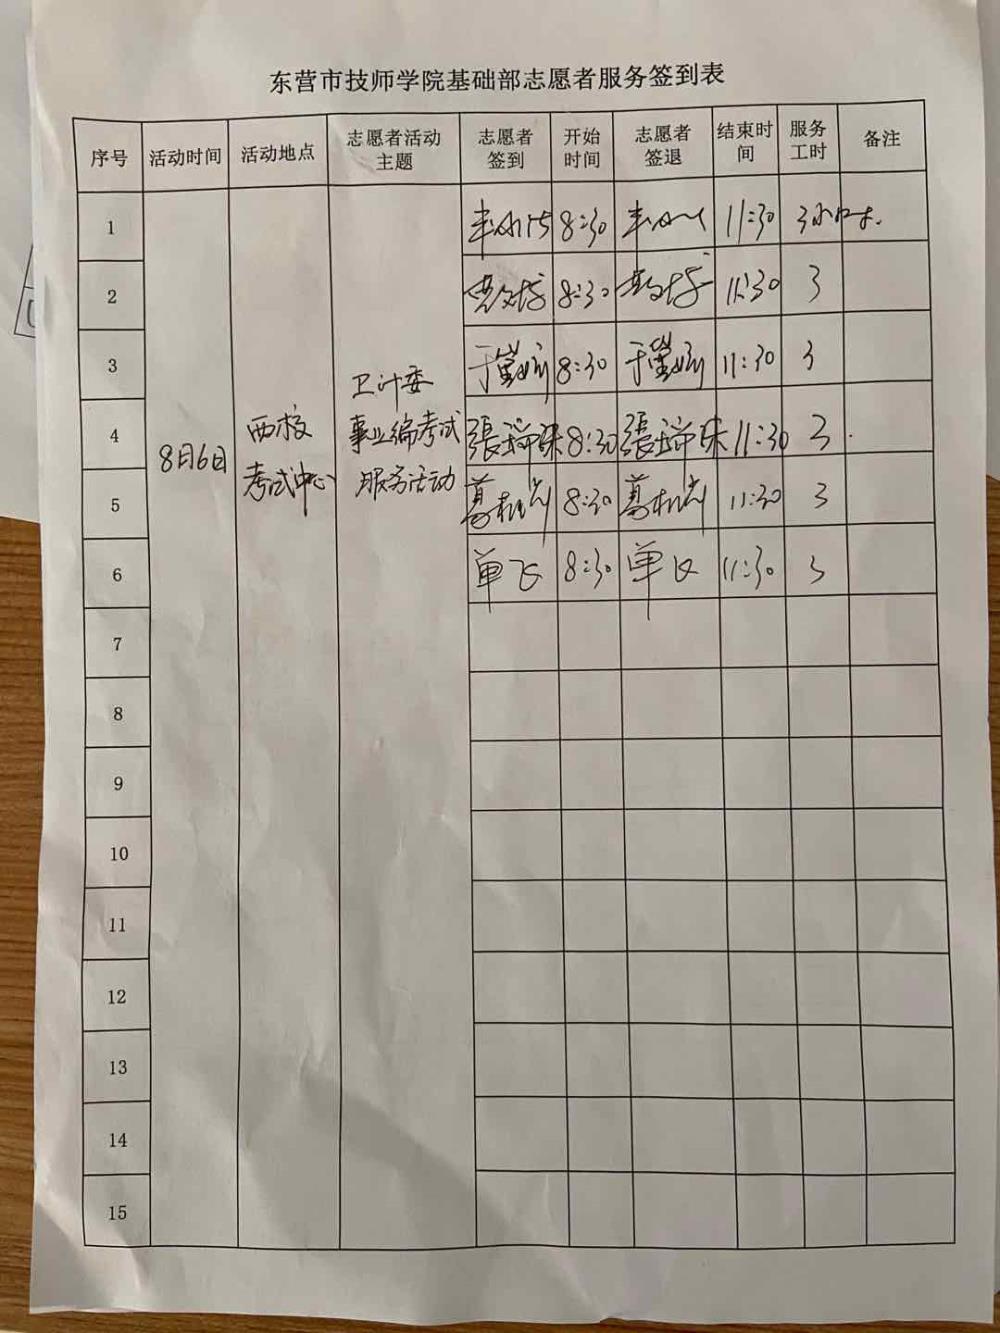 东营市技师学院基础部志愿者服务签到表
序号 活动时间 活动地点 志愿者活动主题 志愿者签到 开始时间 志愿者签退 结束时间 服务工时 备注
8月6日
西校
考试中心
卫计委
事业编考试
服务活动
1 8:30 11:30 3小时.
2 8:30 11:30 3
3 8:30 11:30 3
4 8:30 11:30 3.
5 8:30 11:30 3
6 单飞 8:30 单飞 11:30 3
7
8
9
10
11
12
13
14
15